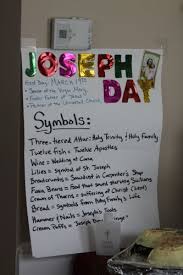 JOSEPH
DAY
Feast Day: MARCH 19th
• Spouse of the Virgin Mary
• Foster Father of Jesus
• Patron of the Universal Church
Symbols:
Three-tiered Altar = Holy Trinity & Holy Family
Twelve fish = Twelve Apostles
Wine = Wedding at Cana
Lilies = Symbol of St. Joseph
Breadcrumbs = Sawdust in Carpenter's Shop
Fava Beans = Food that saved starving Sicilians
Crown of Thorns = Suffering of Christ (Lent)
Bread = Symbols from Holy Family's Life
Hammer & Nails = Joseph's Tools
Cream Puffs = Joseph